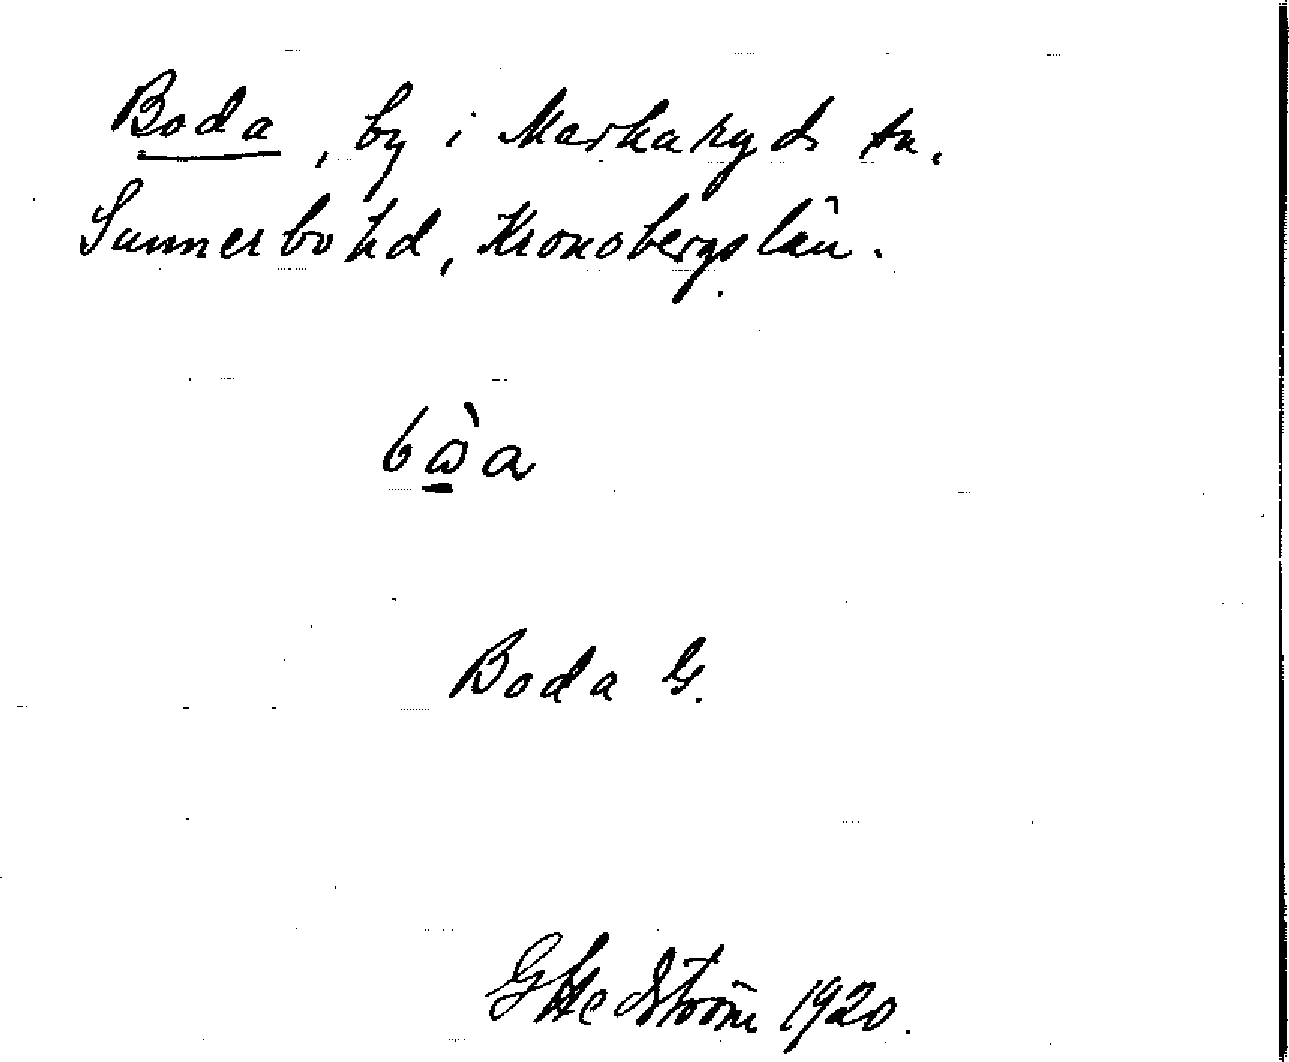 Boda, by i Markaryds sn.
Sunnerbo hd, Kronobergs län.
Boda G.
G Hedström 1920.